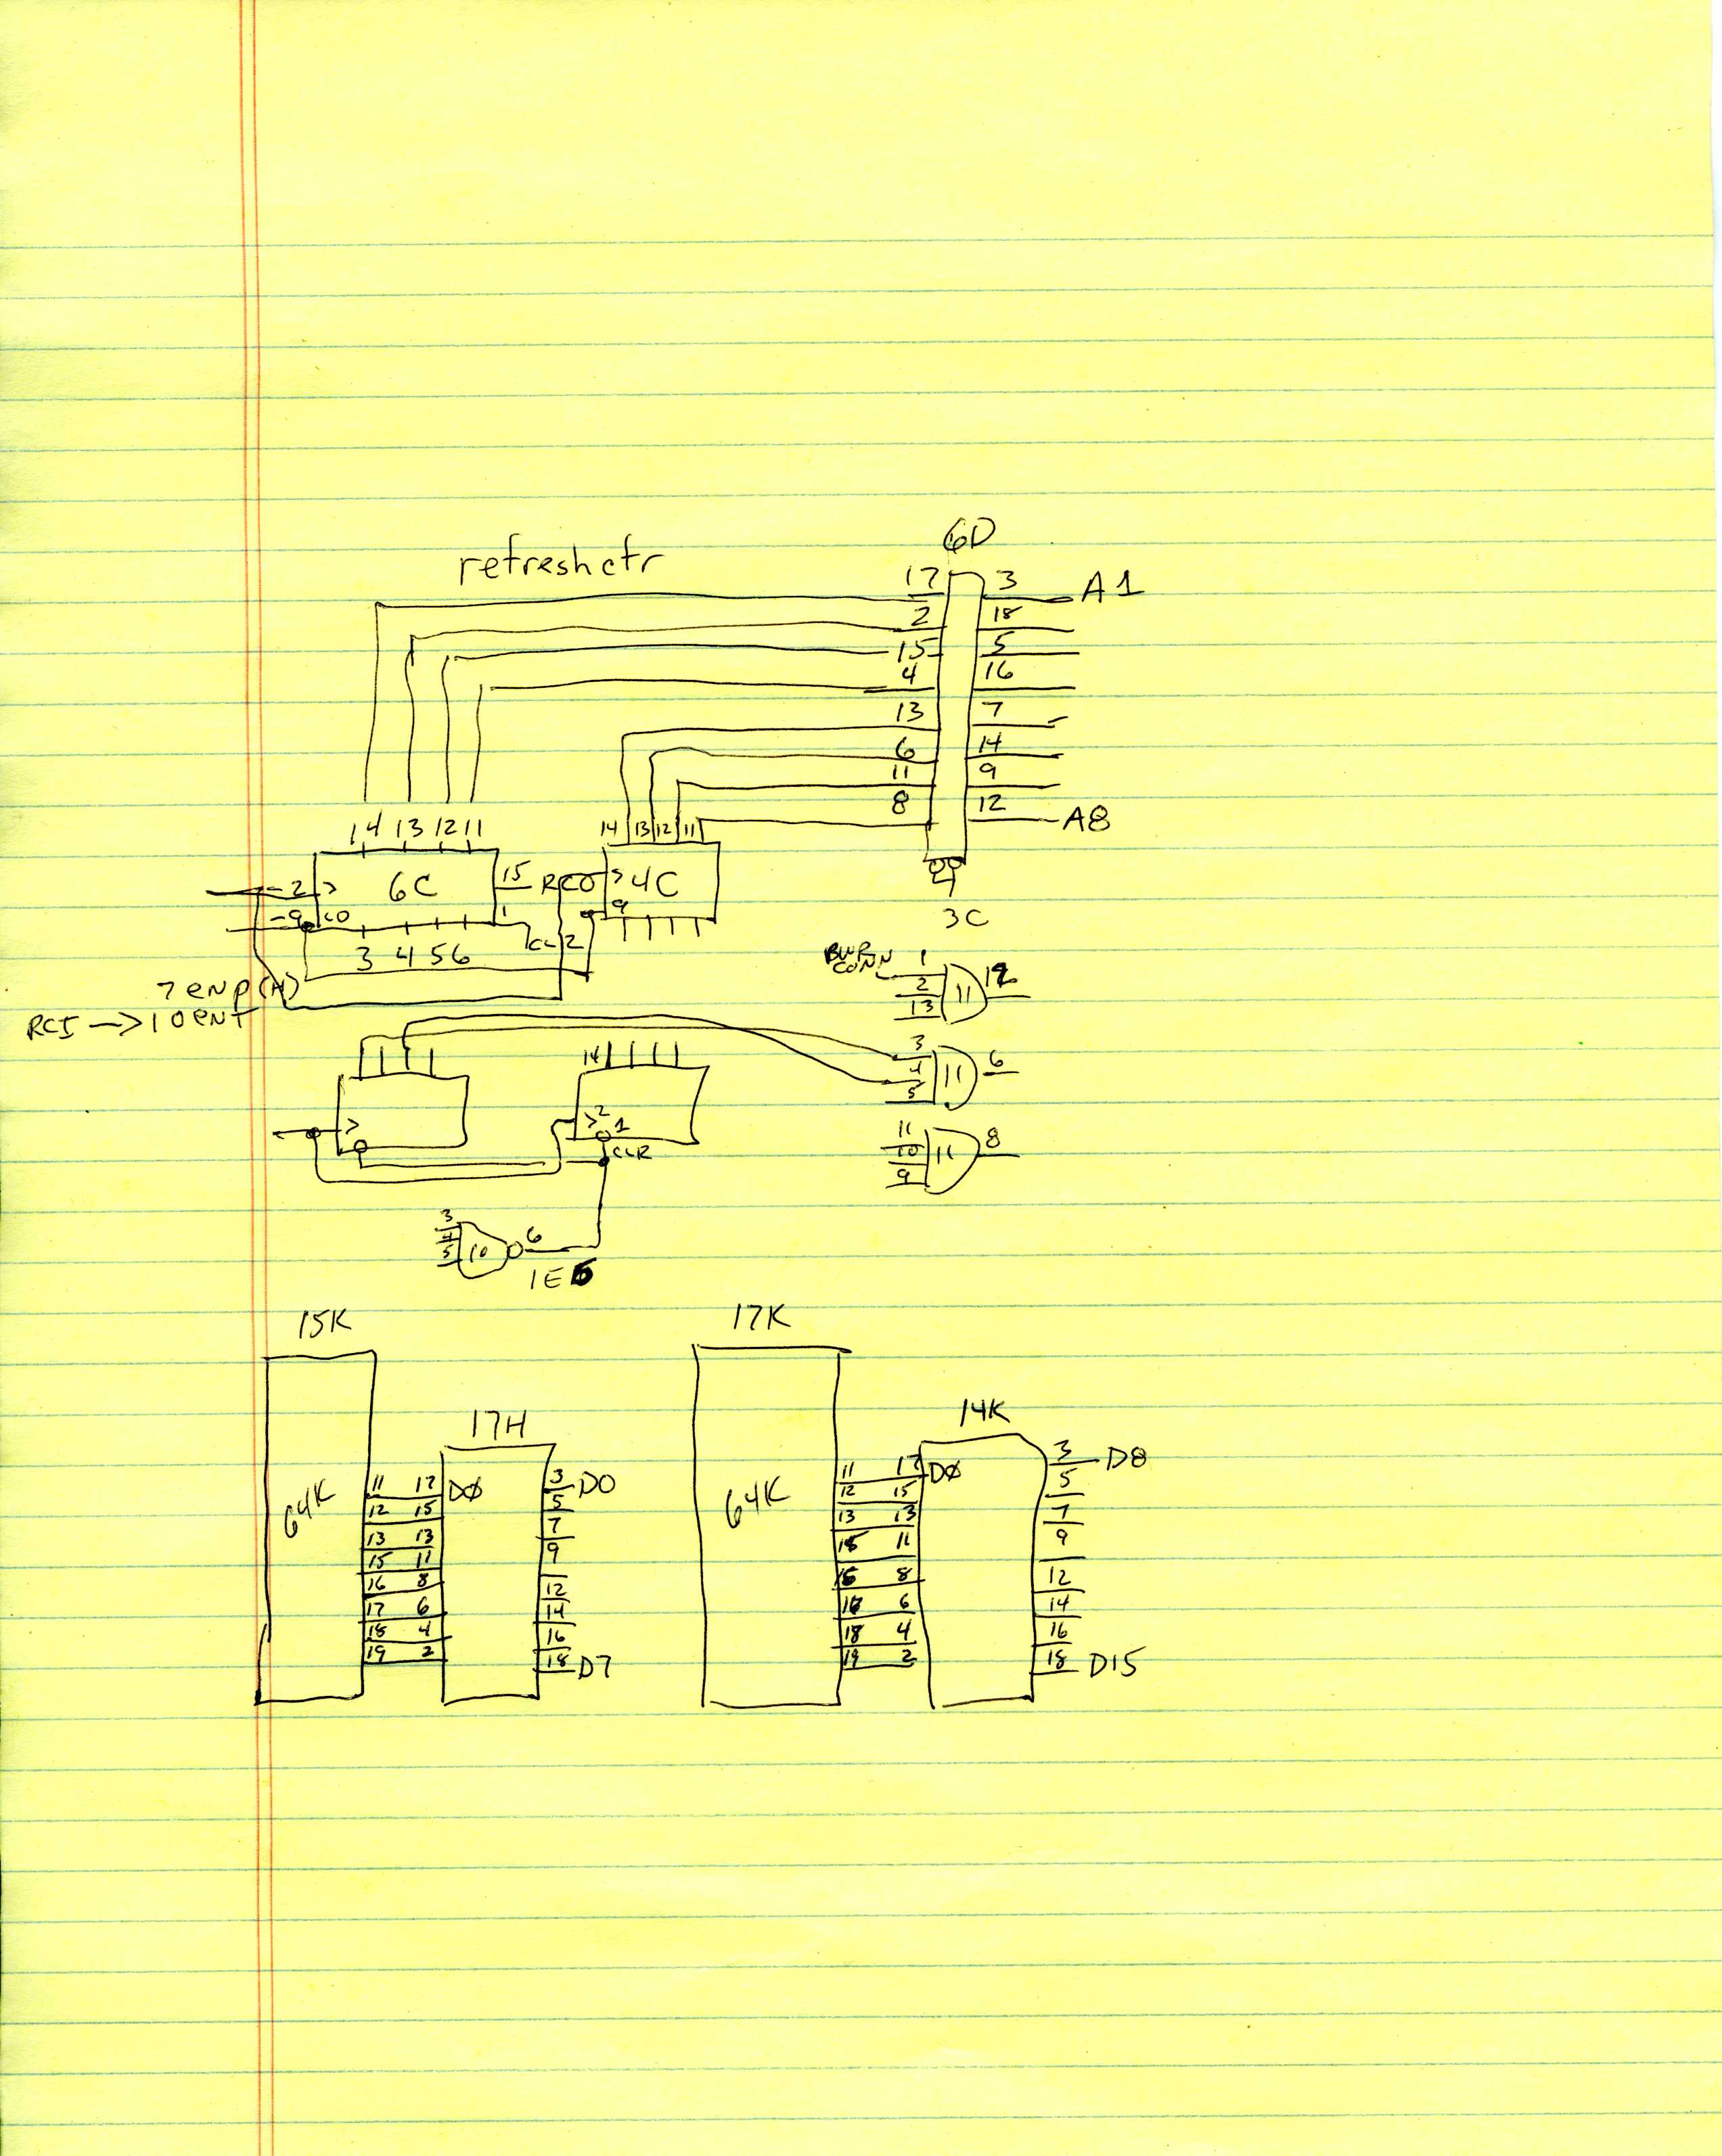 6D
refresh ctr
17 3 A1
2 18
15 5
4 16
13 7
6 14
11 9
8 12 A8
14 13 12 11
14 13 12 11
2 > 6C 15 RCO > 4C
9 LO 1 9
CL 2
3 4 5 6
3C
7 enp (H)
RCI → 10 enT
1
2 11 12
13
3
4 11 6
5
14
> > 2 1
CLR
11
10 11 8
9
3
4 10 6
5
1E6
15K 17K
17H 14K
64K 64K
11 17 DØ 3 D0
12 15 5
13 13 7
15 11 9
16 8 12
17 6 14
18 4 16
19 2 18 D7
11 17 DØ 3 D8
12 15 5
13 13 7
15 11 9
16 8 12
6 14
18 4 16
19 2 18 D15